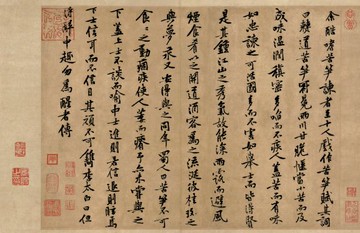 余酷嗜苦笋諫者至十人戲作苦笋賦其詞
曰僰道苦笋冠冕兩川甘脆愜當小苦而反
成味溫潤縝密多啗而不疾人蓋苦而有味
如忠諫之可活國多而不害如舉士而皆得賢
是其鍾江山之秀氣故能深雨露而避風
煙食肴以之開道酒客為之流涎彼桂斑之
與夢汞又安得與之同年蜀人曰苦笋不可
食食之動痼疾使人萎而瘠予亦未嘗與之
下蓋上士不談而喻中士進則若信退則眩焉
下士信耳而不信目其頑不可鐫李太白曰但
得醉中趣勿為醒者傳